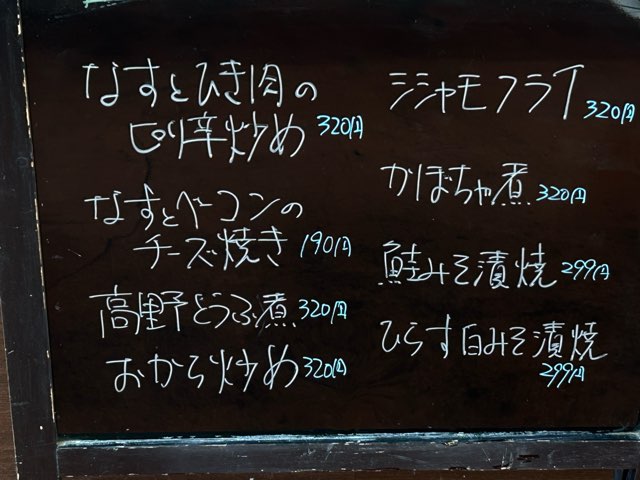 なすとひき肉の
ピリ辛炒め 320円
なすとベーコンの
チーズ焼き 190円
高野どうふ煮 320円
おから炒め 320円
シシャモフライ 320円
かぼちゃ煮 320円
鮭みそ漬焼 299円
ひらす白みそ漬焼
299円